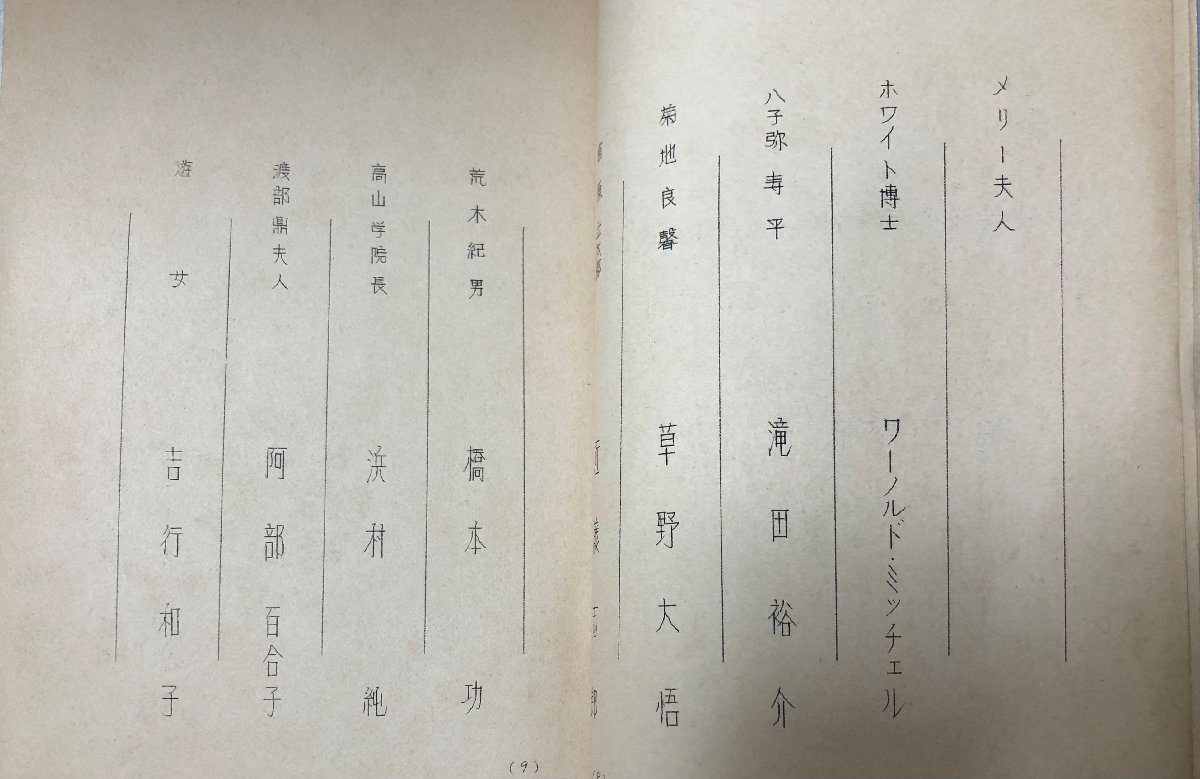 メリー夫人
ホワイト博士 ワーノルド・ミッチェル
八子弥寿平 滝田裕介
菊地良馨 草野大悟
荒木紀男 橋本功
高山学院長 浜村純
渡部鼎夫人 阿部百合子
遊女 吉行和子
(9)